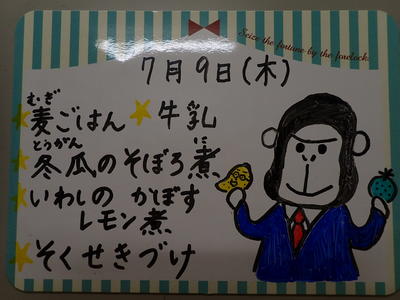 Seize the fortune by the forelock.
7月9日(木)
むぎ
麦ごはん ★牛乳
とうがん に
★冬瓜のそぼろ煮
★いわしの かぼす
レモン煮
★そくせきづけ